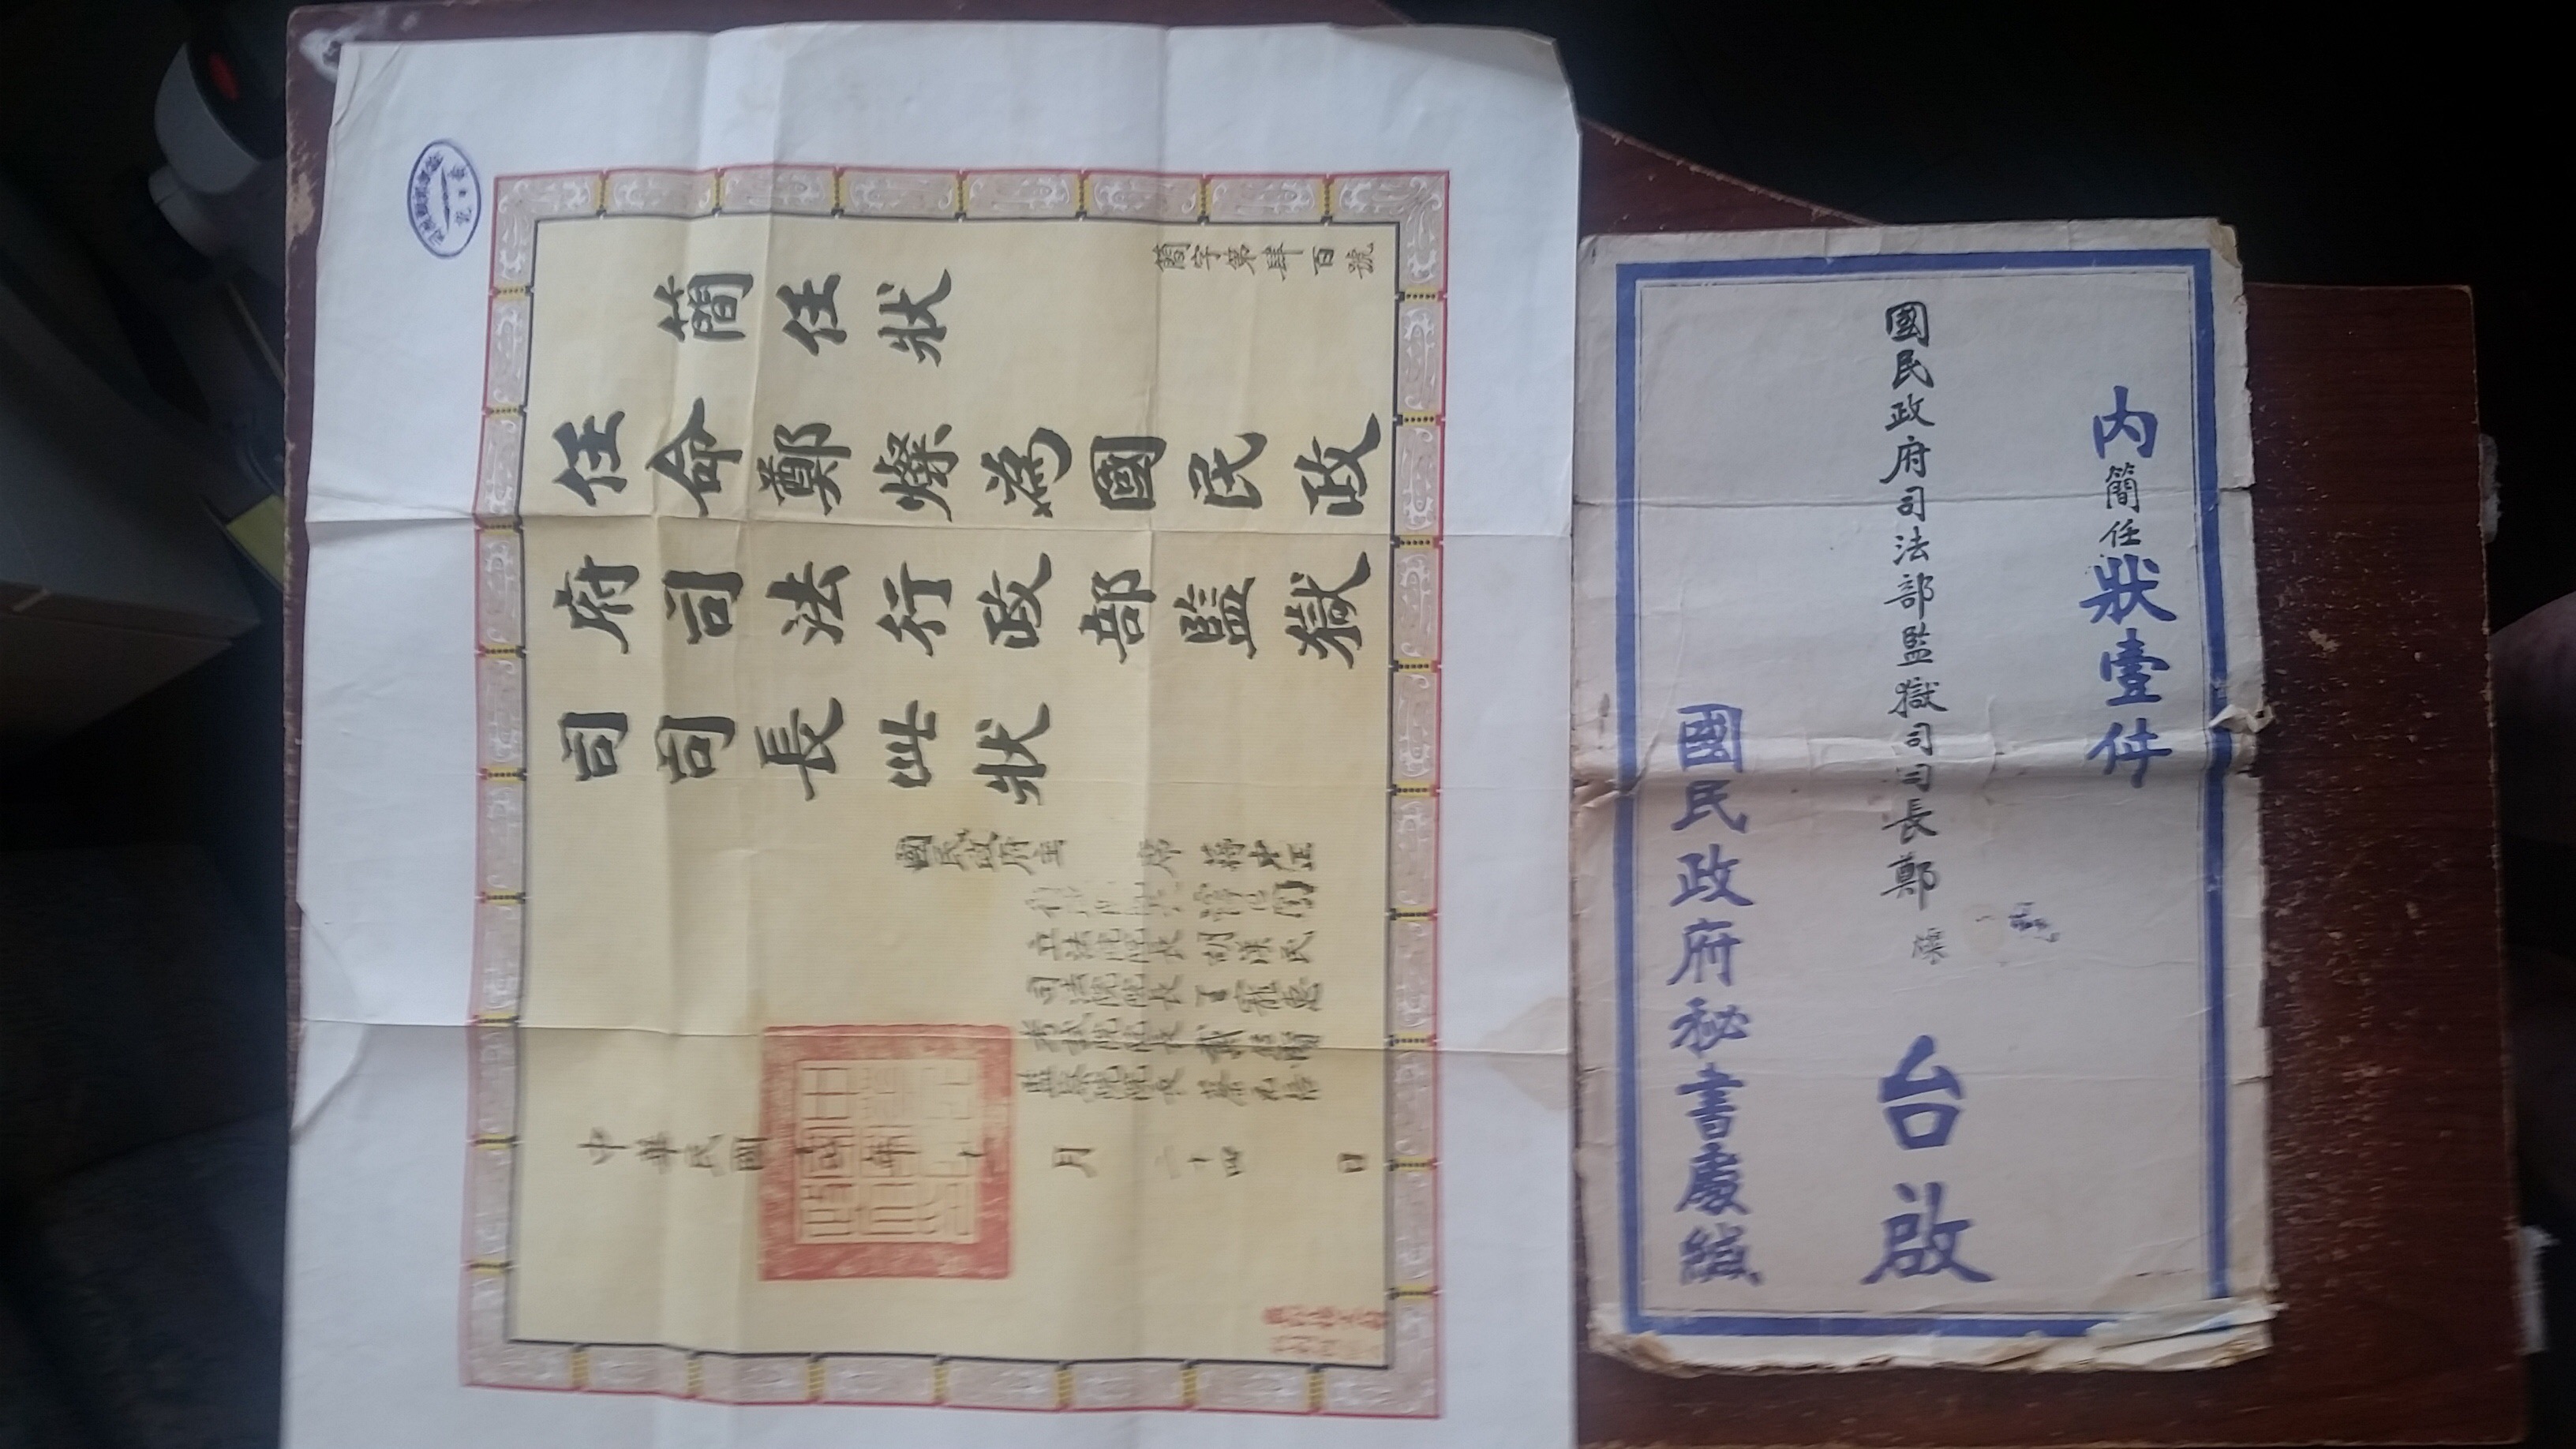 簡字第肆百號
簡任狀
任命鄭燦為國民政
府司法行政部監獄
司司長此狀
國民政府主席 蔣中正
立法院院長 胡漢民
司法院院長 王寵惠
考試院院長 戴
監察院院長 蔡元培
中華民國 年 月二十四日
內簡任狀壹件
國民政府司法部監獄司司長鄭
台啟
國民政府秘書處緘